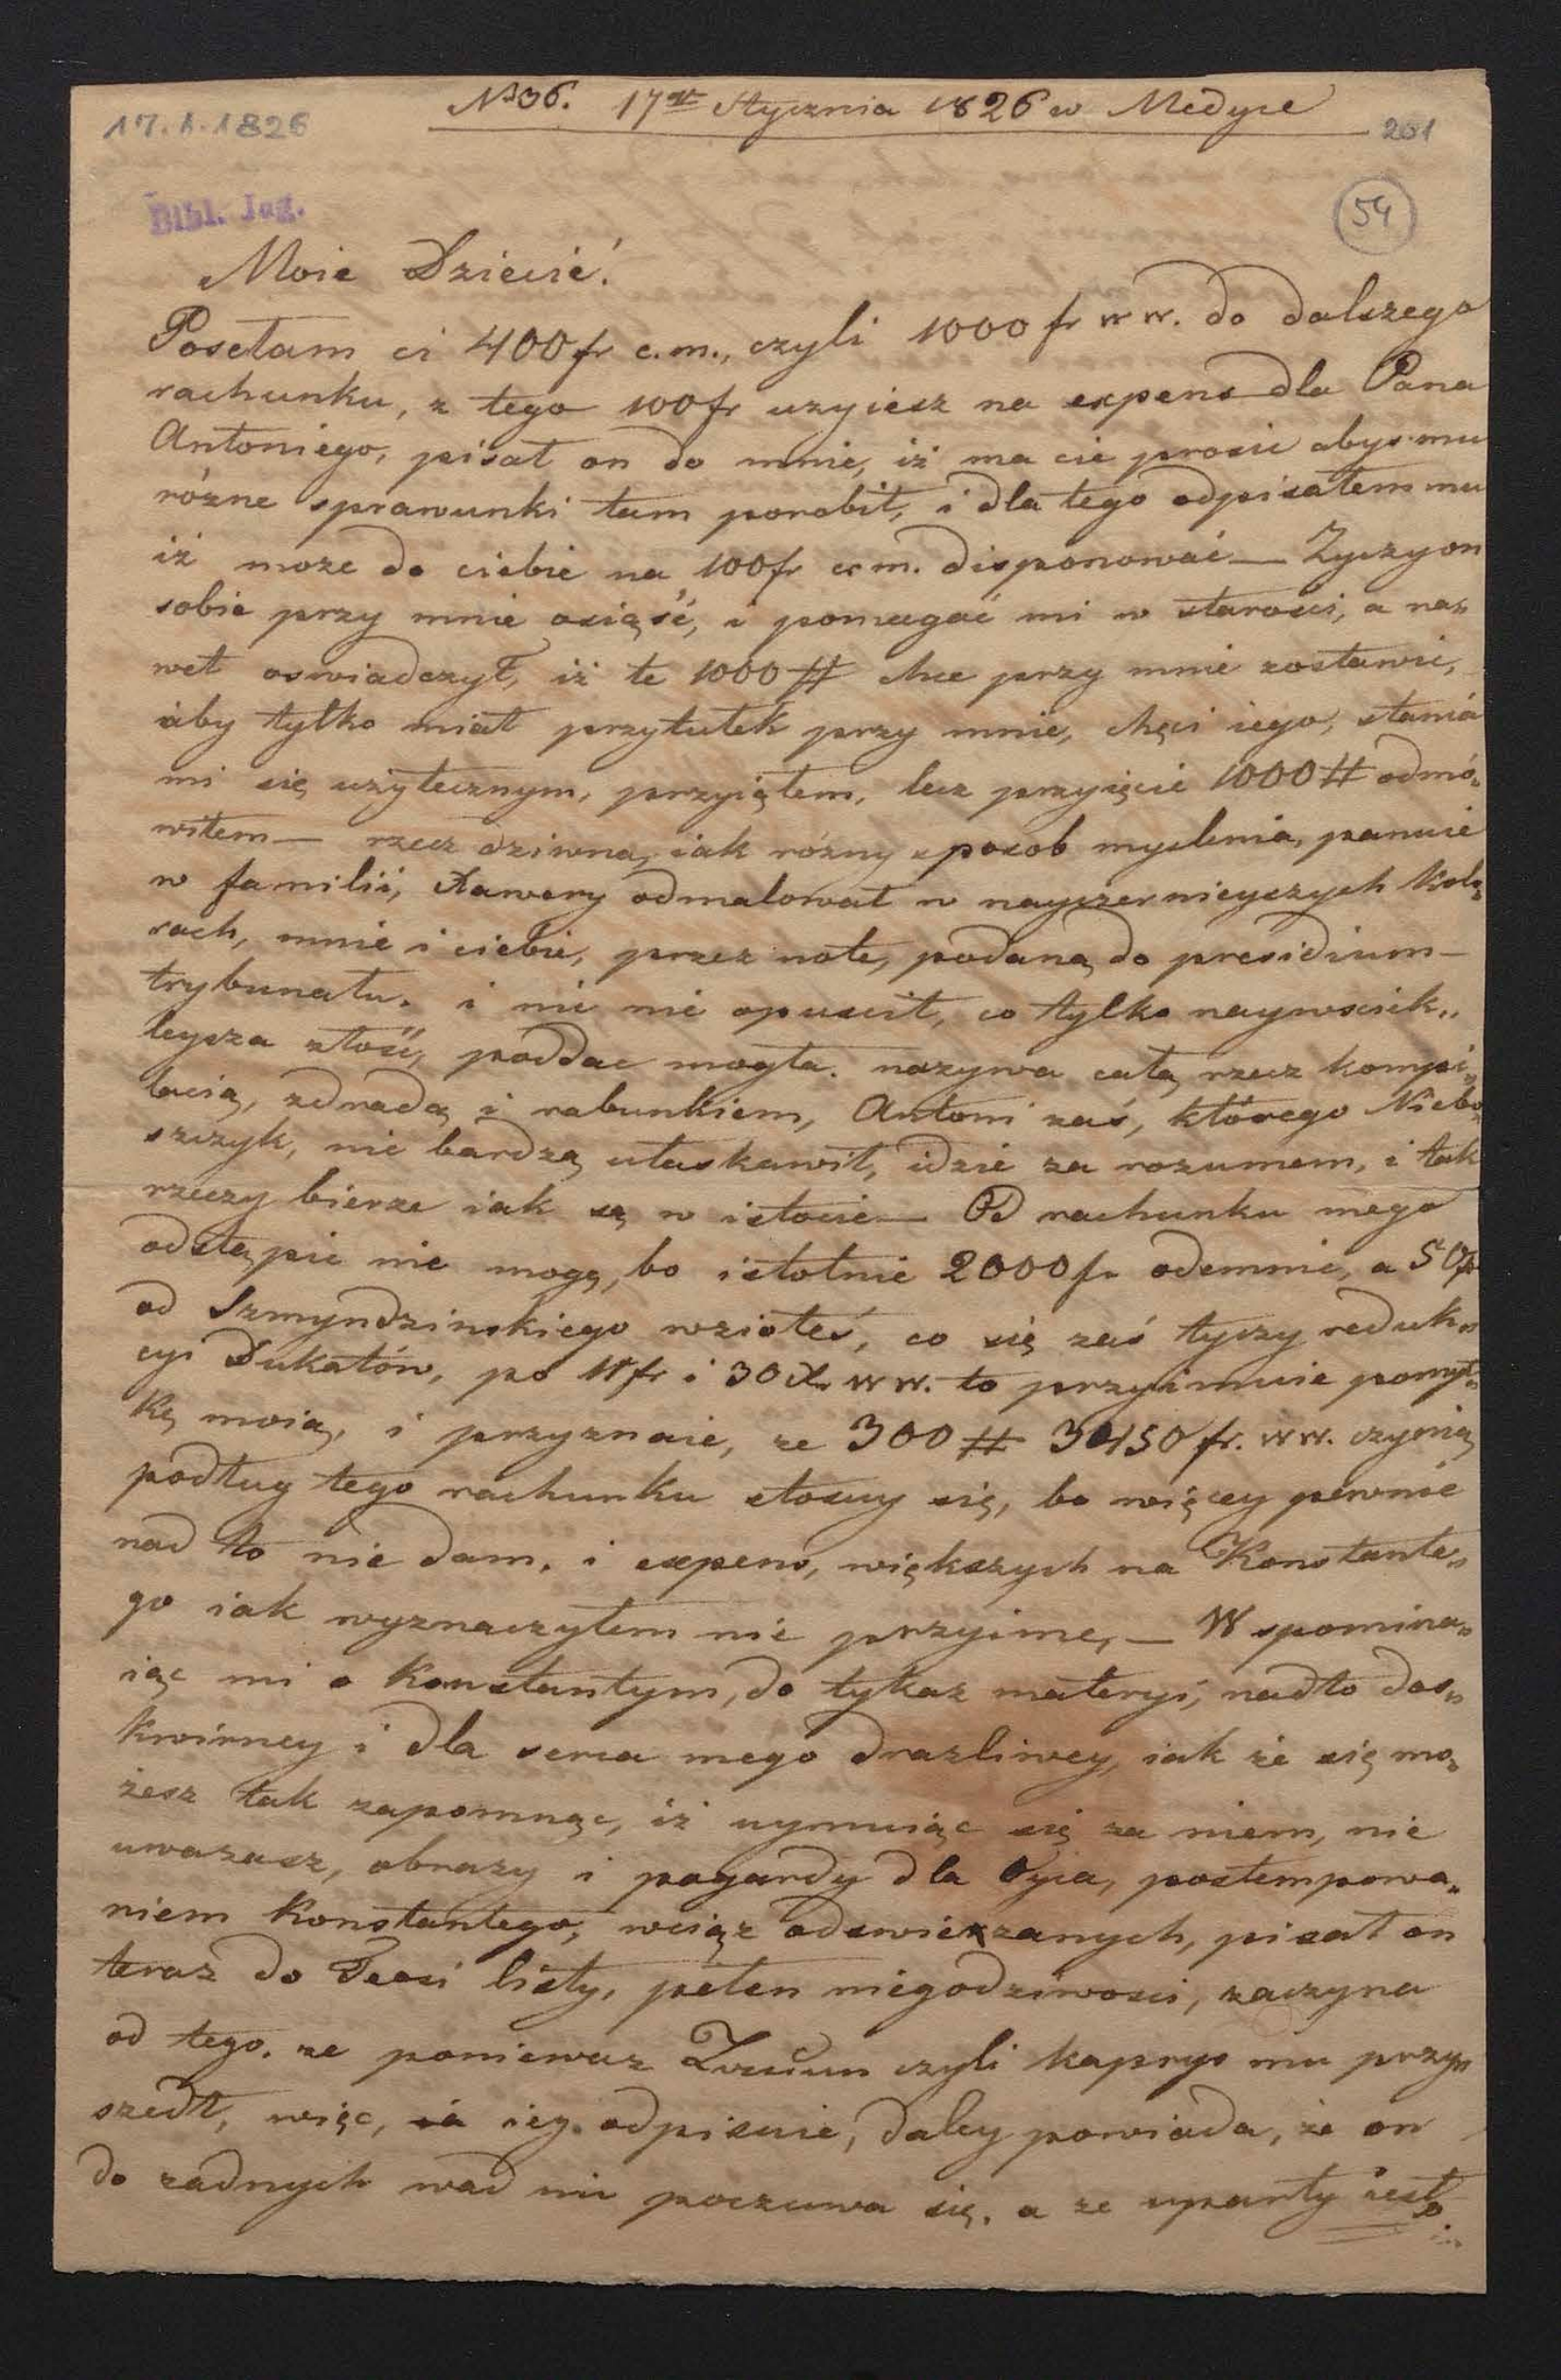 No 36. 17go Stycznia 1826 w Medyce
17.1.1826
201
Bibl. Jag.
54
Moie Dziecie!
Posełam ci 400 fr c.m., czyli 1000 fr w w. do dalszego
rachunku, z tego 100 fr uzyiesz na expens dla Pana
Antoniego, pisał on do mnie, iż ma cie prosic abys mu
różne sprawunki tam porobił, i dla tego odpisałem mu
iż moze do ciebie na 100 fr c.m. disponować — Zyczy on
sobie przy mnie osiąść, i pomagać mi w starosci, a na„
wet oswiadczył, iż te 1000 # chce przy mnie zostawic,
aby tylko miał przytułek przy mnie, chęci iego, stania
mi się użytecznym, przyiąłem, lecz przyięcie 1000 # odmó„
wiłem — rzecz dziwna, iak rózny sposob myslenia, panuie
w familii, Xawery odmalował w nayczernieyszych kolo„
rach, mnie i ciebie, przez note, podaną do presidium —
trybunału. i nic nie opuscił, co tylko naywsciek„
leysza złość, poddac mogła. nazywa całą rzecz kompi„
lacią, zdradą i rabunkiem, Antoni zaś, którego Niebo„
szczyk, nie bardzą ułaskawił, idzie za rozumem, i tak
rzeczy bierze iak są w istocie — Od rachunku mego
odstąpic nie mogę, bo istotnie 2000 fr odemnie, a 50 fr
od Szmyndzinskiego wziołeś, co się zaś tyczy reduk„
cyi Dukatów, po 11 fr i 30 Xr w w. to przyimuie pomył„
kę moią, i przyznaie, ze 300 # 3450 fr. w w. czynią
podług tego rachunku stosuy się, bo więcey pewnie
nad to nie dam. i expens, większych na Konstante„
go iak wyznaczyłem nie przyime, — Wspomina„
iąc mi o Konstantym, do tykaz materyi, nadto dos„
kwirney i dla serca mego drazliwey, iak że się mo„
żesz tak zapomnąc, iż uymuiąc się za niem, nie
uwazasz, obrazy i pogardy dla Oyca, postempowa„
niem Konstantego, wciąz odswiezanych, pisał on
teraz do listy, pełen niegodziwosci, zaczyna
od tego. ze poniewaz czyli kaprys mu przy„
szedł, więc, odpisuie, daley powiada, że on
do zadnych wad nie poczuwa się. a ze uparty iest